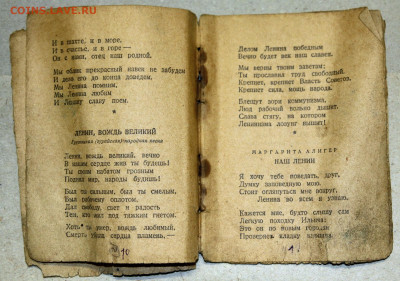 COINS.SAVE.RU
И в шахте, и в море,
И в счастье, и в горе —
Он с нами, отец наш родной.
Мы облик прекрасный навек не забудем
И дело его до конца доведем,
Мы Ленина помним,
Мы Ленина любим
И Ленину славу поем.
ЛЕНИН, ВОЖДЬ ВЕЛИКИЙ
народная песня
Ленин, вождь великий, вечно
В нашем сердце жив ты будешь!
Ты своим набатом грозным
Поднял мир, народы будишь!
Был ты сильным, был ты смелым,
Был рабочему оплотом,
Дал свободу, свет и радость
Тем, кто жил под тяжким гнетом.
Хоть ты умер, вождь любимый,
Смерть твоя сердца пламень, —
10
Делом Ленина победным
Вечно будет век наш славен.
Мы верны твоим заветам;
Ты прославил труд свободный.
Крепнет, крепнет Власть Советов.
Крепнет сила, мощь народа.
Блещут зори коммунизма,
Люд рабочий только дышит.
Слава стягу, на котором
Ленинизма лозунг вышит!
МАРГАРИТА АЛИГЕР
НАШ ЛЕНИН
Я хочу тебе поведать, друг,
Думку заповедную мою.
Стоит оглянуться мне вокруг,
Ленина во всем я узнаю.
Кажется мне, будто слышу сам
Легкую походку Ильича:
Это он по новым городам
Проверяет кладку кирпича.